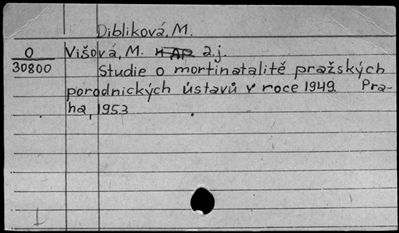 Dibliková, M.
O Višová, M. a j.
30800 Studie o mortinatalitě pražských
porodnických ústavů v roce 1949. Pra-
ha, 1953